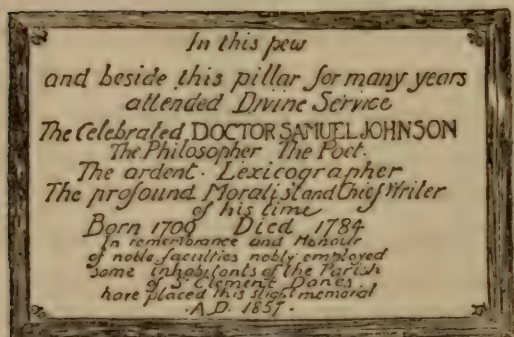 In this pew
and beside this pillar for many years
attended Divine Service
The Celebrated DOCTOR SAMUEL JOHNSON
The Philosopher The Poet.
The ardent. Lexicographer
The profound Moralist and Chief Writer
of his time
Born 1709 Died 1784
In remembrance and Honour
of noble faculties nobly employed
some inhabitants of the Parish
of St Clement Danes.
have placed this slight memorial
.A.D. 1851.